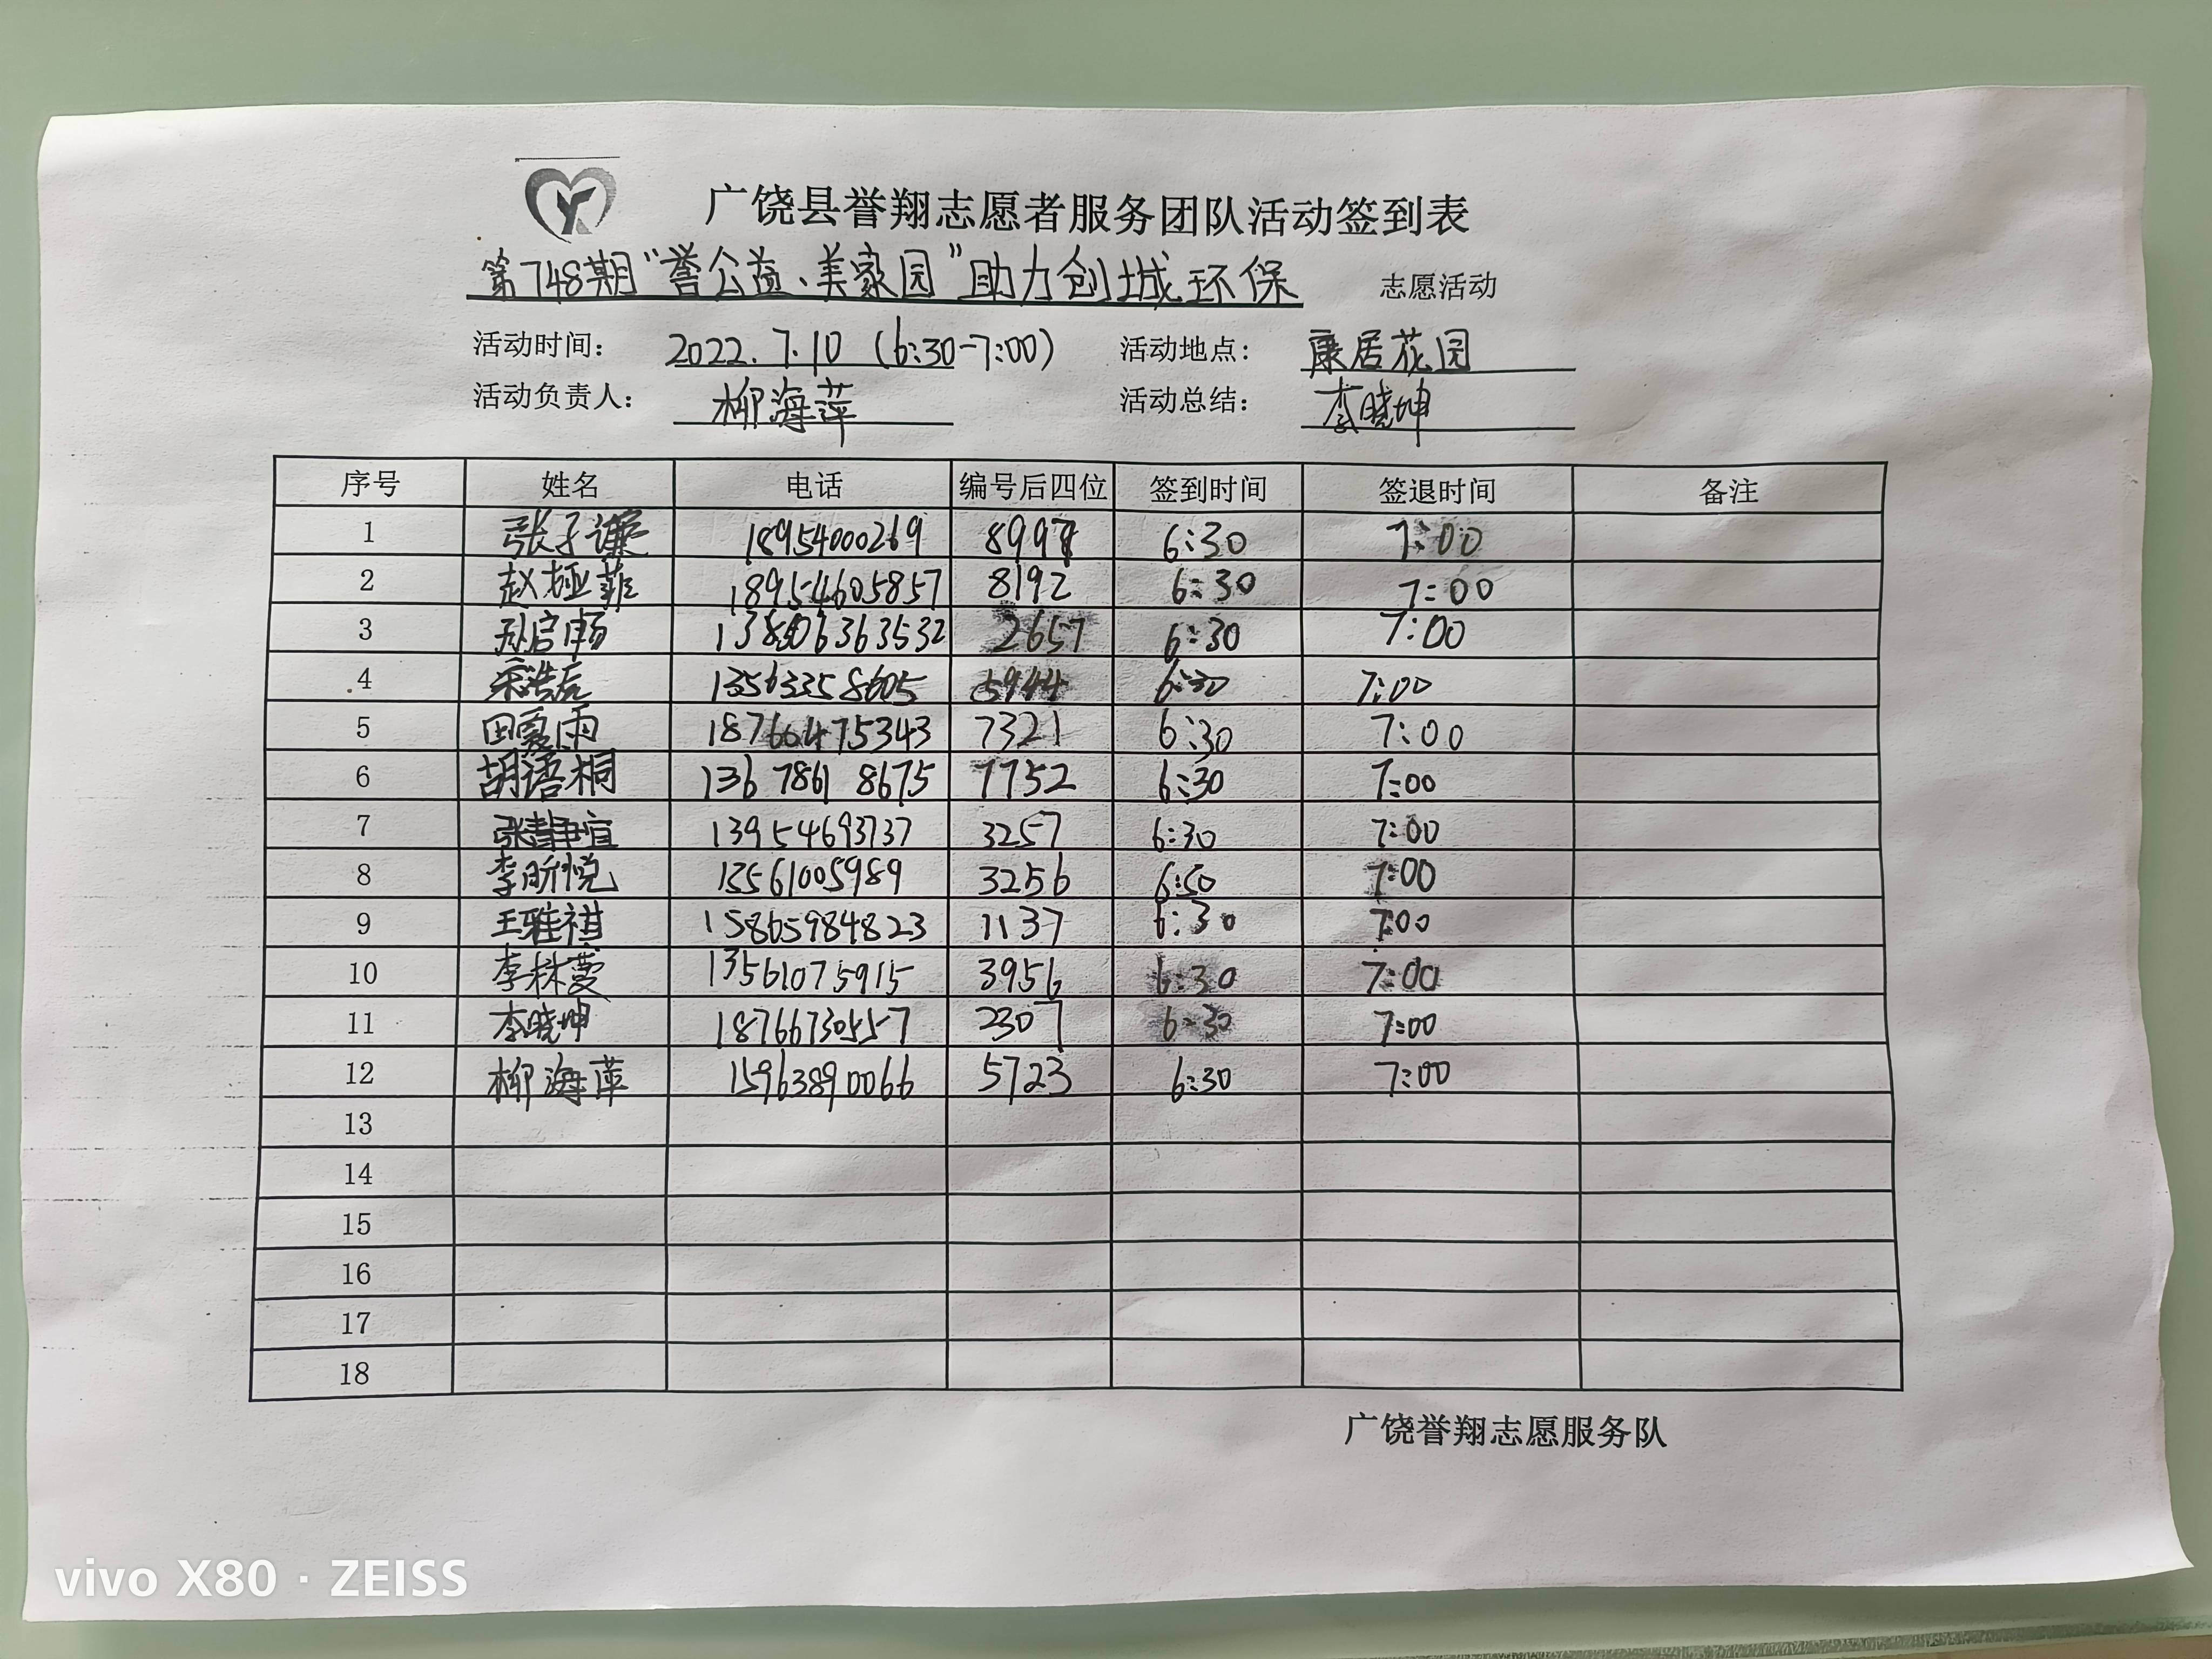 广饶县誉翔志愿者服务团队活动签到表
第748期“誉公益、美家园”助力创城环保 志愿活动
活动时间： 2022.7.10 (6:30-7:00) 活动地点： 康居花园
活动负责人： 柳海萍 活动总结： 李晓坤
序号 姓名 电话 编号后四位 签到时间 签退时间 备注
1 张子谦 18954000269 899 6:30 7:00
2 赵娅菲 18954605857 8192 6:30 7:00
3 孙启畅 2657 6:30 7:00
4 13563358605 5944 6:30 7:00
5 田爱雨 18766475343 7321 6:30 7:00
6 胡语桐 136 7861 8675 7752 6:30 7:00
7 张静宜 13954693737 3257 6:30 7:00
8 李昕悦 13561005989 3256 6:50 7:00
9 王雅祺 15865984823 1137 6:30 7:00
10 李林蔓 13561075915 3956 6:30 7:00
11 李晓坤 18766730557 2307 6:30 7:00
12 柳海萍 15963890066 5723 6:30 7:00
13
14
15
16
17
18
广饶誉翔志愿服务队
vivo X80 · ZEISS